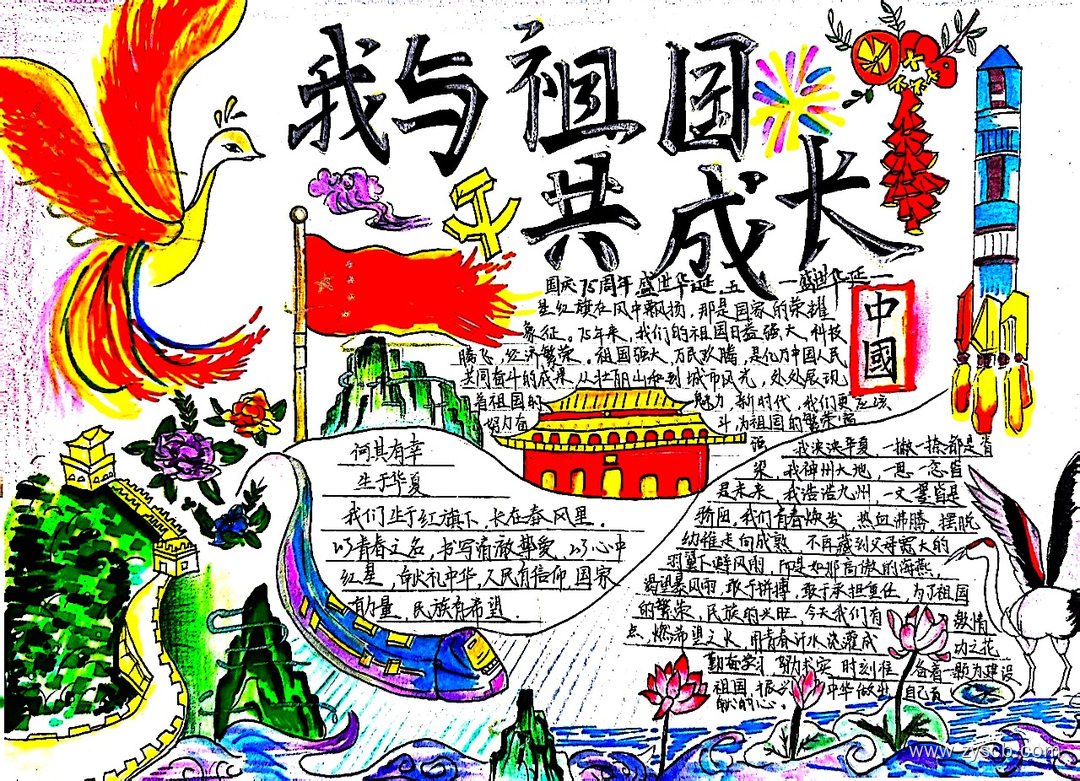 我与祖国
共成长
国庆75周年 盛世华诞，五一盛世华诞一
星红旗在风中飘扬，那是国家的荣耀
象征。75年来，我们的祖国日益强大，科技
腾飞，经济繁荣。祖国强大，万民欢腾，是亿万中国人民
共同奋斗的成果，从壮丽山河到城市风光，处处展现
着祖国的魅力，新时代，我们更应该
努力奋斗，为祖国的繁荣富
强
中國
我泱泱华夏，一撇一捺都是脊
梁，我神州大地，一思一念皆
是未来，我浩浩九州，一文一墨皆是
骄阳，我们青春焕发，热血沸腾，摆脱
幼稚走向成熟，不再藏到父母宽大的
羽翼下避风雨，而是如那高傲的海燕，
渴望暴风雨，敢于拼搏，敢于承担责任，为了祖国
的繁荣，民族的兴旺，今天我们有激情
点燃希望之火，用青春汗水浇灌成功之花
勤奋学习，努力求实，时刻准备着一颗为建设
祖国，振兴中华做出自己贡
献的心。
何其有幸
生于华夏
我们生于红旗下，长在春风里。
以青春之名，书写清澈挚爱，以心中
红星，献礼中华，人民有信仰，国家
有力量，民族有希望。